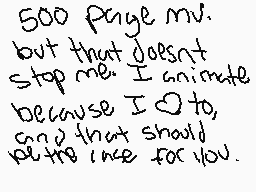 500 page mv.
but that doesnt
stop me. I animate
because I ♡ to,
and that should
be the case for you.